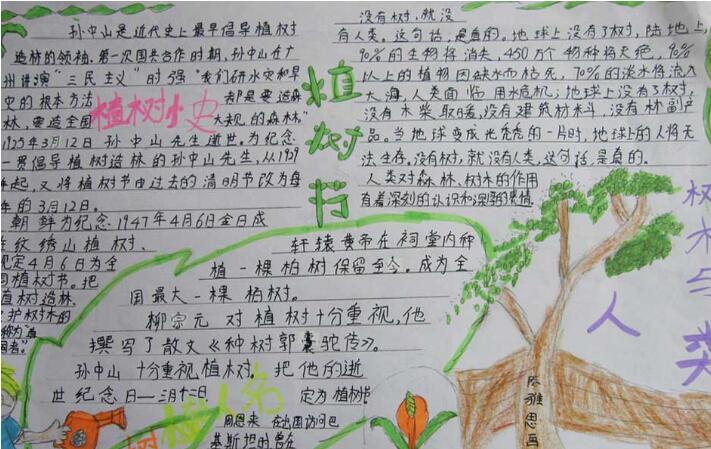 孙中山是近代史上最早倡导植树
造林的领袖.第一次国共合作时期,孙中山在广
州讲演"三民主义"时强"我们研水灾和旱
灾的根本方法 都是要造森
林,要造全国大规的森林."
1925年3月12日孙中山先生逝世.为纪念
一贯倡导植树造林的孙中山先生,从1929
年起,又将植树节由过去的清明节改为每
年的3月12日。
植树小史
朝鲜为纪念1947年4月6日金日成
在纹绣山植树、
规定4月6日为全
国植树节。把
植树造林
护树木的
植树行
没有树,就没
有人类。这句话,是真的,地球上没有了树,陆地上,
90%的生物将消失,450万个物种将灭绝,90%
以上的植物因缺水而枯死,70%的淡水将流入
大海,人类面临用水危机;地球上没有了树,
没有木柴取暖,没有建筑材料,没有林副产
品。当地球变成光秃秃的一片时,地球上的人将无
法生存,没有树,就没有人类,这句话,是真的.
人类对森林、树木的作用
有着深刻的认识和深厚的感情.
轩辕黄帝在祠堂内种
植一棵柏树保留至今。成为全
国最大一棵柏树。
柳宗元对植树十分重视,他
撰写了散文《种树郭橐驼传》。
孙中山十分重视植树.把他的逝
世纪念日—三月十二日. 定为植树节
周恩来在出国访问巴
基斯坦时曾在
树木与人类
陈雅思画